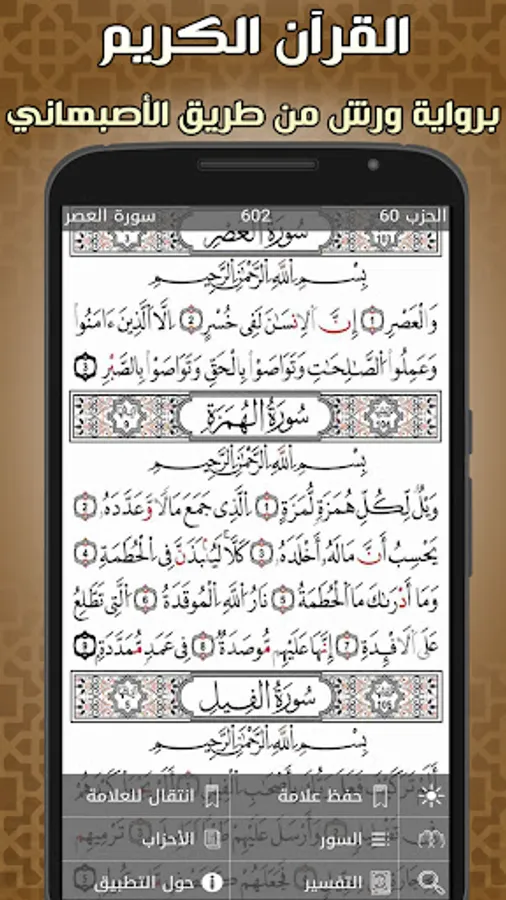 القرآن الكريم
برواية ورش من طريق الأصبهاني
الحزب 60 602 سورة العصر
103 سورة العصر 3
بسم الله الرحمن الرحيم
وَالْعَصْرِ 1 إِنَّ اَلِانسَٰنَ لَفِى خُسْرٍ 2 اِلَّا اَلَّذِينَ ءَامَنُواْ
وَعَمِلُواْ اُلصَّٰلِحَٰتِ وَتَوَاصَوْاْ بِالْحَقِّ وَتَوَاصَوْاْ بِالصَّبْرِ 3
104 سُورَةُ الْهُمَزَةِ 9
بسم الله الرحمن الرحيم
وَيْلٌ لِّكُلِّ هُمَزَةٍ لُّمَزَةٍ 1 اِلَّذِى جَمَعَ مَالًا وَّعَدَّدَهُۥ 2
يَحْسِبُ أَنَّ مَالَهُۥ أَخْلَدَهُۥ 3 كَلَّا لَيُنۢبَذَنَّ فِى اِلْحُطَمَةِ 4
وَمَا أَدْرَىٰكَ مَا اَلْحُطَمَةُ 5 نَارُ اُللَّهِ اِلْمُوقَدَةُ 6 اُلَّتِى تَطَّلِعُ
عَلَى اَلَافْـِٕدَةِ 7 إِنَّهَا عَلَيْهِم مُّوصَدَةٌ 8 فِى عَمَدٍ مُّمَدَّدَةٍ 9
105 سُورَةُ الْفِيلِ 5
بسم الله الرحمن الرحيم
حفظ علامة انتقال للعلامة
السور الأحزاب
التفسير حول التطبيق